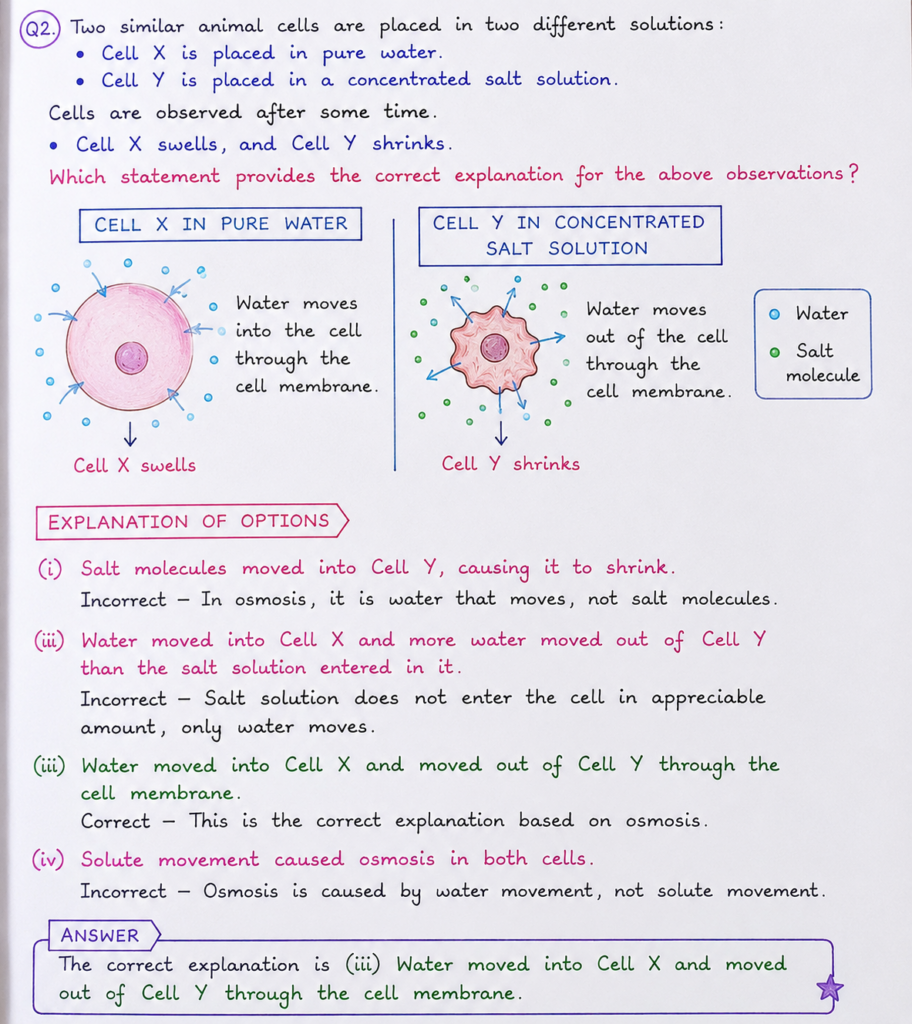 Q2. Two similar animal cells are placed in two different solutions:
• Cell X is placed in pure water.
• Cell Y is placed in a concentrated salt solution.
Cells are observed after some time.
• Cell X swells, and Cell Y shrinks.
Which statement provides the correct explanation for the above observations?
CELL X IN PURE WATER
Water moves
into the cell
through the
cell membrane.
Cell X swells
CELL Y IN CONCENTRATED
SALT SOLUTION
Water moves
out of the cell
through the
cell membrane.
Cell Y shrinks
Water
Salt
molecule
EXPLANATION OF OPTIONS
(i) Salt molecules moved into Cell Y, causing it to shrink.
Incorrect – In osmosis, it is water that moves, not salt molecules.
(iii) Water moved into Cell X and more water moved out of Cell Y
than the salt solution entered in it.
Incorrect – Salt solution does not enter the cell in appreciable
amount, only water moves.
(iii) Water moved into Cell X and moved out of Cell Y through the
cell membrane.
Correct – This is the correct explanation based on osmosis.
(iv) Solute movement caused osmosis in both cells.
Incorrect – Osmosis is caused by water movement, not solute movement.
ANSWER
The correct explanation is (iii) Water moved into Cell X and moved
out of Cell Y through the cell membrane.